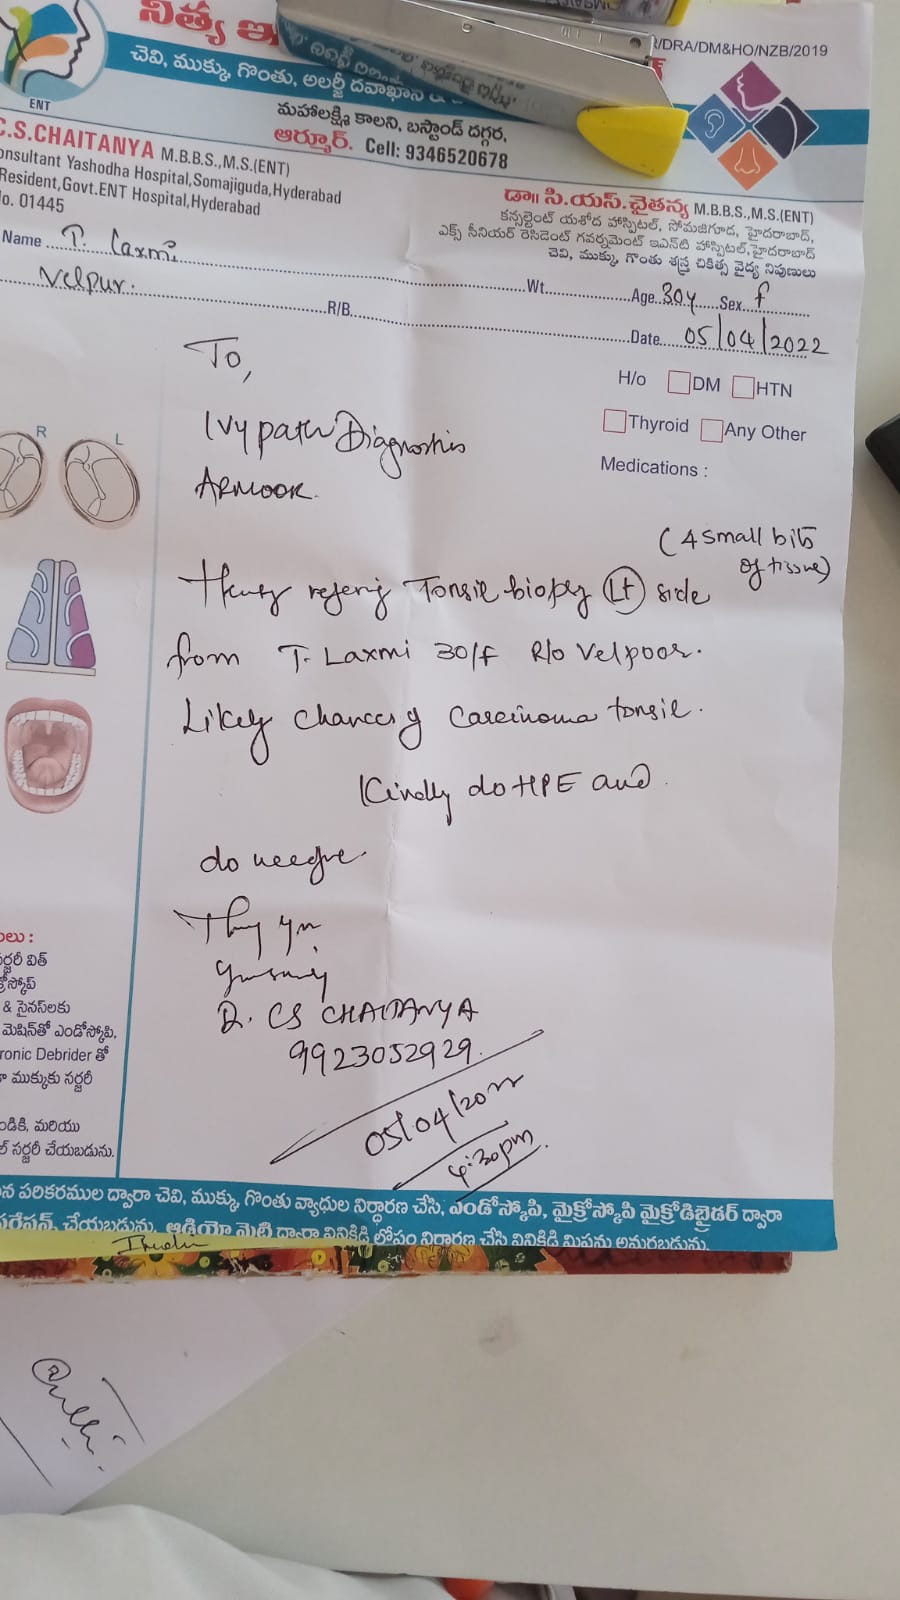 నిత్య ఇ
R/DRA/DM&HO/NZB/2019
చెవి, ముక్కు, గొంతు, అలర్జీ దవాఖాన
మహాలక్ష్మి కాలని, బస్టాండ్ దగ్గర,
ఆర్మూర్. Cell: 9346520678
ENT
C.S.CHAITANYA M.B.B.S.,M.S.(ENT)
onsultant Yashodha Hospital,Somajiguda,Hyderabad
Resident,Govt.ENT Hospital,Hyderabad
lo. 01445
డా॥ సి.యస్.చైతన్య M.B.B.S.,M.S.(ENT)
కన్సల్టెంట్ యశోద హాస్పిటల్, సోమజిగూడ, హైదరాబాద్,
ఎక్స్ సీనియర్ రెసిడెంట్ గవర్నమెంట్ ఇఎన్‌టి హాస్పిటల్,హైదరాబాద్
చెవి, ముక్కు, గొంతు శస్త్ర చికిత్స వైద్య నిపుణులు
Name T. Laxmi Wt. Age 30y Sex f
Velpur. R/B Date 05/04/2022
To,
Ivypath Diagnostics
ARMOOR.
H/o DM HTN
Thyroid Any Other
Medications :
R L
(4 small bits
of tissue)
refering Tonsil biopsy Lt side
from T. Laxmi 30/f R/o Velpoor.
Likely chances of Carcinoma tonsil.
Kindly do HPE and
do
Dr. CS CHAITANYA
9923052929.
05/04/2022
4:30pm.
లు :
ర్జరీ విత్
క్రోస్కోప్
& సైనస్‌లకు
మెషిన్‌తో ఎండోస్కోపి,
ronic Debrider తో
ా ముక్కుకు సర్జరీ
ండికి, మరియు
ల్ సర్జరీ చేయబడును.
న పరికరముల ద్వారా చెవి, ముక్కు, గొంతు వ్యాధుల నిర్ధారణ చేసి, ఎండోస్కోపి, మైక్రోస్కోపి మైక్రోడిబ్రైడర్ ద్వారా
పరేషన్స్ చేయబడును. ఆడియో మెట్రి ద్వారా వినికిడి లోపం నిర్ధారణ చేసి వినికిడి మిషను అమరబడును.